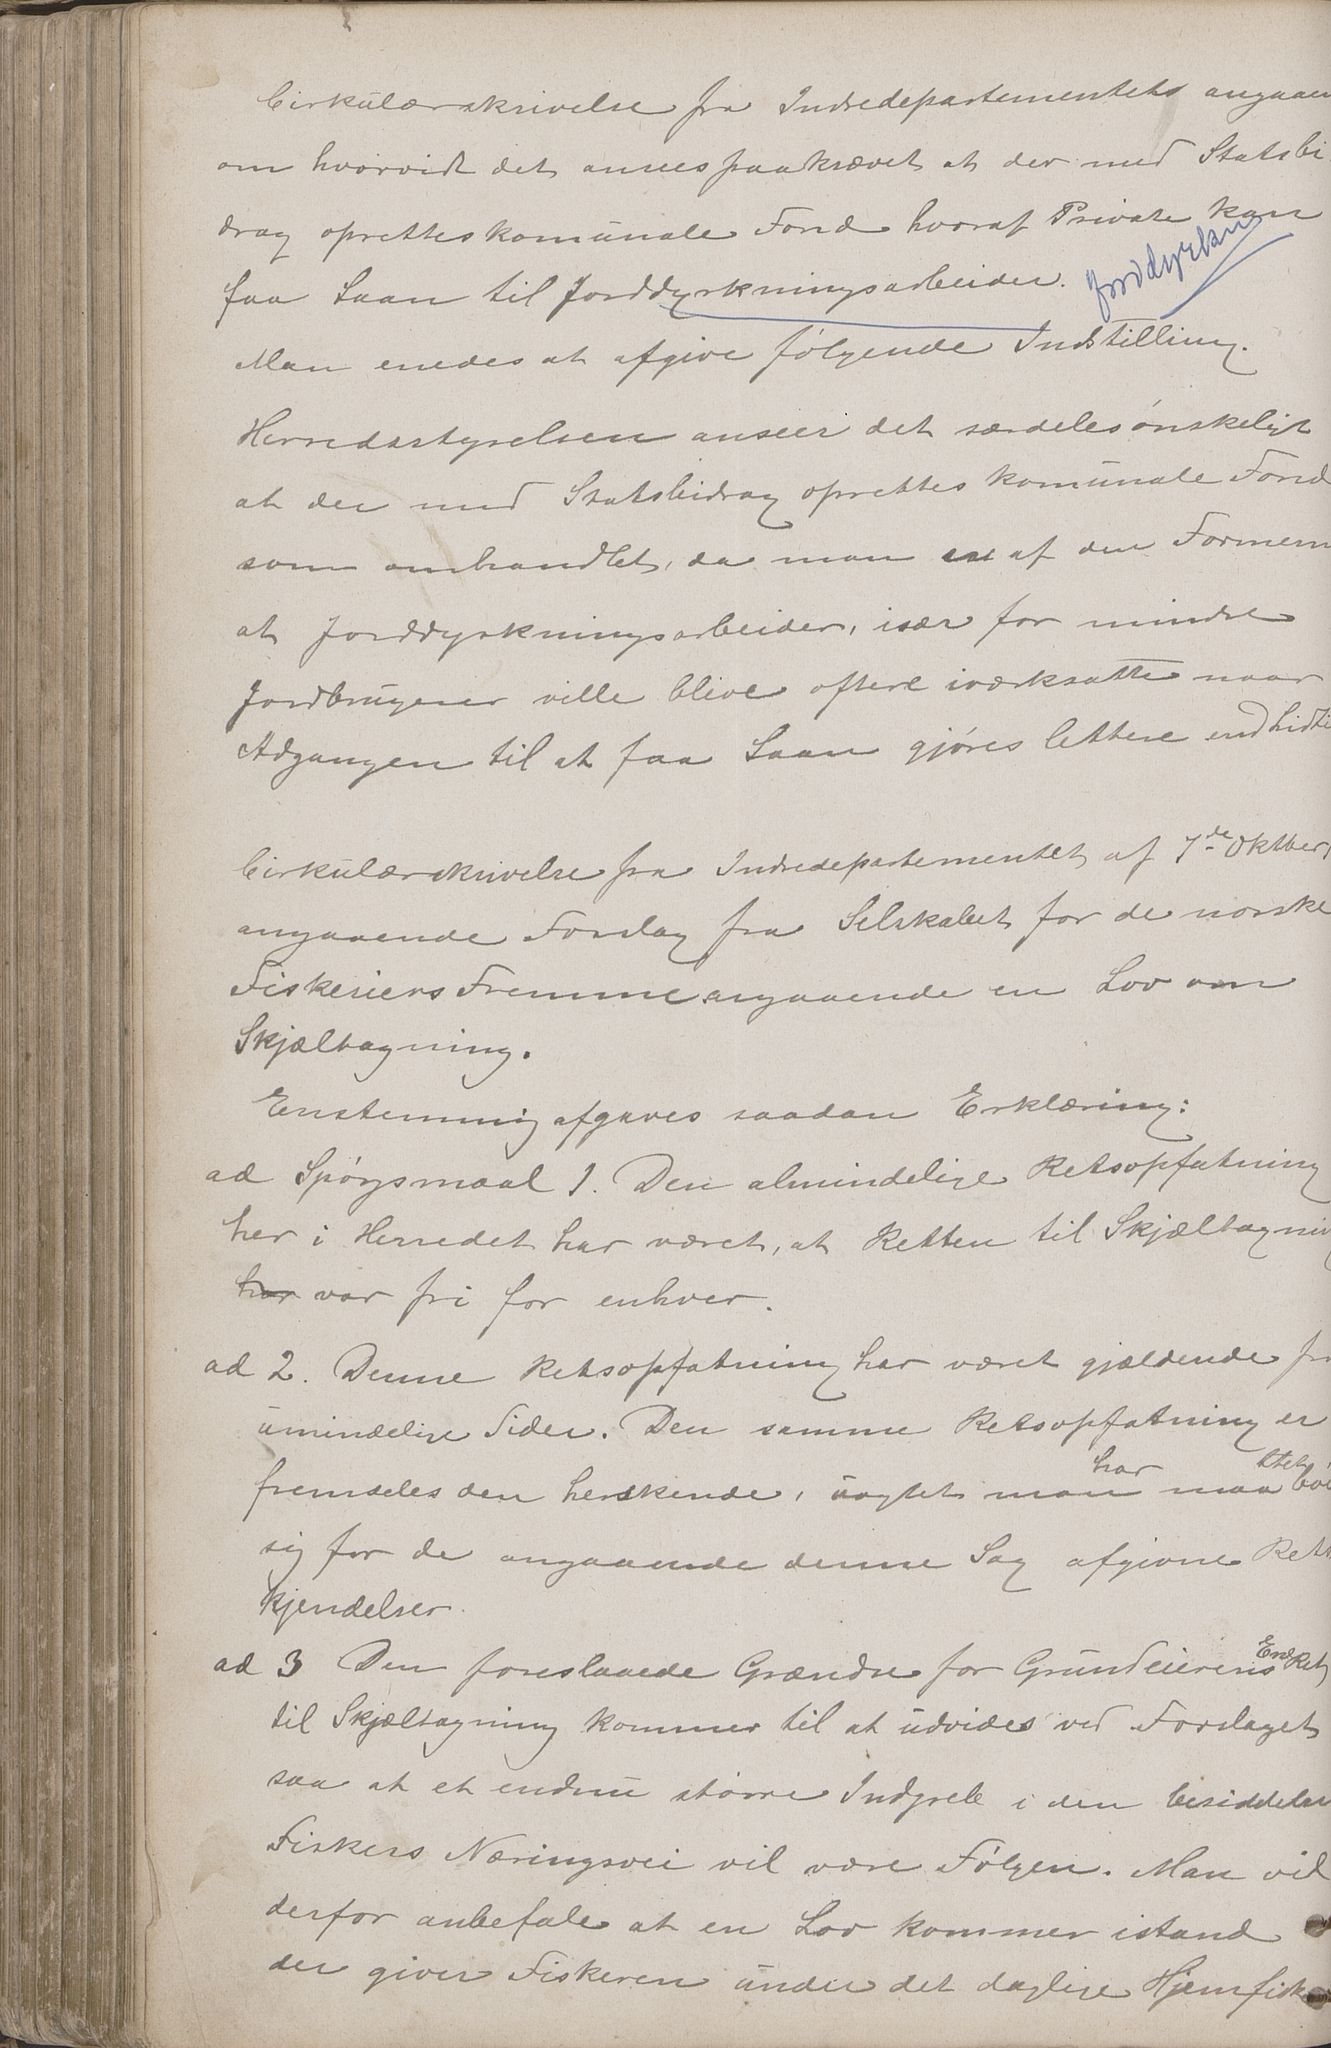 Cirkülærskrivelse fra Indredepartementets angaaen
om hvorvidt det ansees paakrævet at der med Statsbi
drag oprettes komünale Fond hvoraf Private kan
faa Laan til Jorddyrkningsarbeider. Jorddyrkning
Man enedes at afgive følgende Indstilling.
Herredsstyrelsen anseer det særdeles ønskeligt
at der med Statsbidrag oprettes komünale Fond
som omhandlet, da man er af den Formen
at Jorddyrkningsarbeider, især for mindre
Jordbrügere ville blive oftere iværksatte naar
Adgangen til at faa Laan gjøres lettere end hidti
Cirkülærskrivelse fra Indredepartementet af 7de Oktber
angaaende Forslag fra Selskabet for de norske
Fiskeriers Fremme angaaende en Lov om
Skjæltagning.
Enstemmig afgaves saadan Erklæring:
ad Spørgsmaal 1. Den almindelige Retsopfatning
her i Herredet har været, at Retten til Skjæltagning
har var fri for enhver.
ad 2. Denne Retsopfatning har været gjældende fra
ümindelige Tider. Den samme Retsopfatning er
fremdeles den herskende, üagtet man har maattet bøie
sig for de angaaende denne Sag afgivne Rets
kjendelser.
ad 3 Den foreslaaede Grændse for Gründeierens Ene Ret
til Skjæltagning kommer til at üdvides ved Forslaget
saa at et endnü større Indgreb i den besiddelse
Fiskers Næringsvei vil være Følgen. Man vil
derfor anbefale at en Lov kommer istand
der giver Fiskeren ünder det daglige Hjemfiske